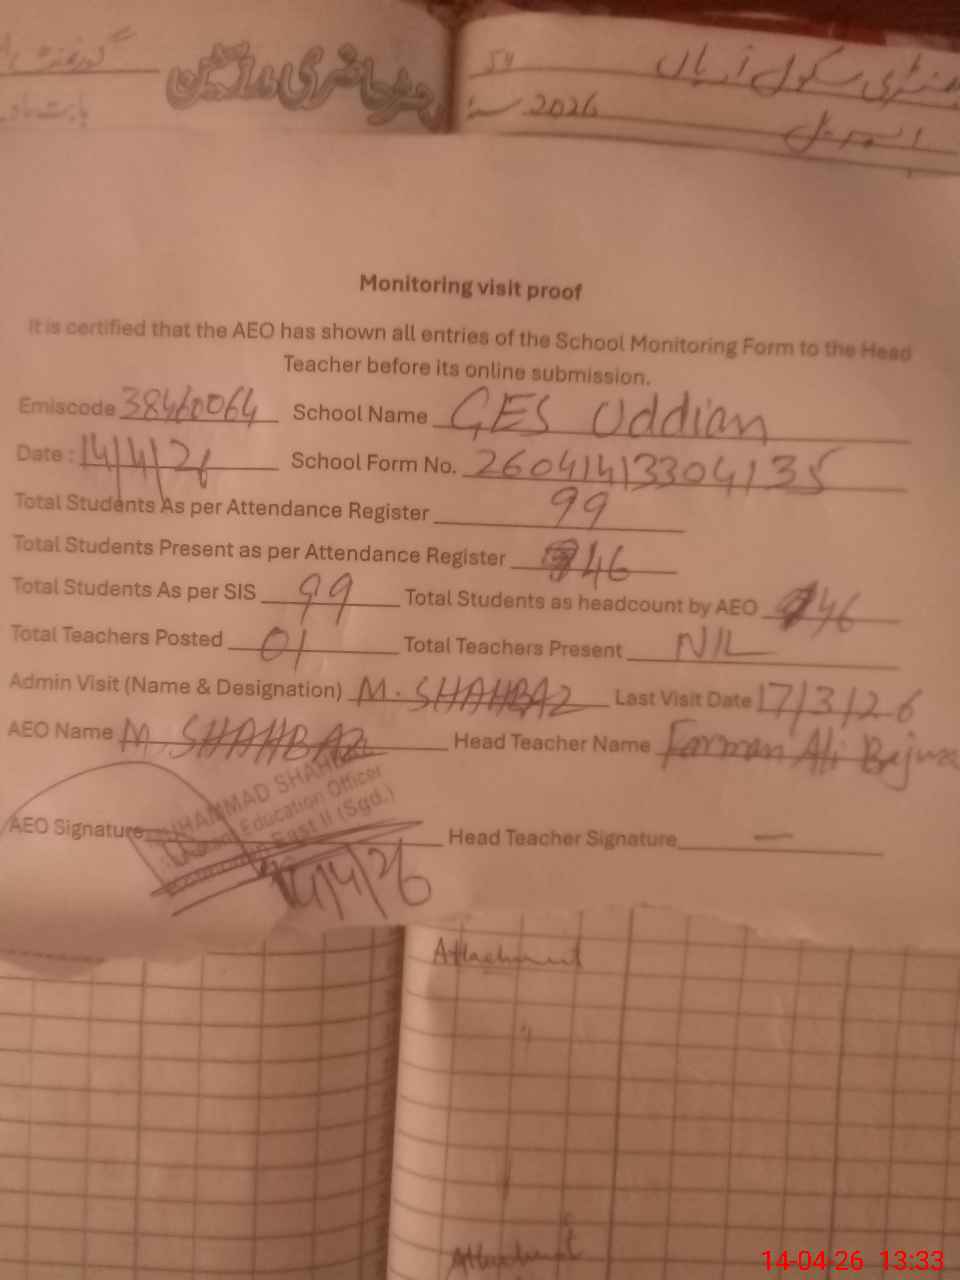 رجسٹر حاضری مدرسین
سکول
2026
اپریل
Monitoring visit proof
It is certified that the AEO has shown all entries of the School Monitoring Form to the Head
Teacher before its online submission.
Emiscode 38460064 School Name GES Uddian
Date : 14/4/26 School Form No. 260414133304135
Total Students As per Attendance Register 99
Total Students Present as per Attendance Register 46
Total Students As per SIS 99 Total Students as headcount by AEO 46
Total Teachers Posted 01 Total Teachers Present NIL
Admin Visit (Name & Designation) M. SHAHBAZ Last Visit Date 17/3/26
AEO Name M. SHAHBAZ Head Teacher Name Farman Ali
MUHAMMAD SHAHBAZ
Education Officer
East II (Sgd.)
AEO Signature Head Teacher Signature —
14/4/26
Attachment
Attachment
14-04-26 13:33